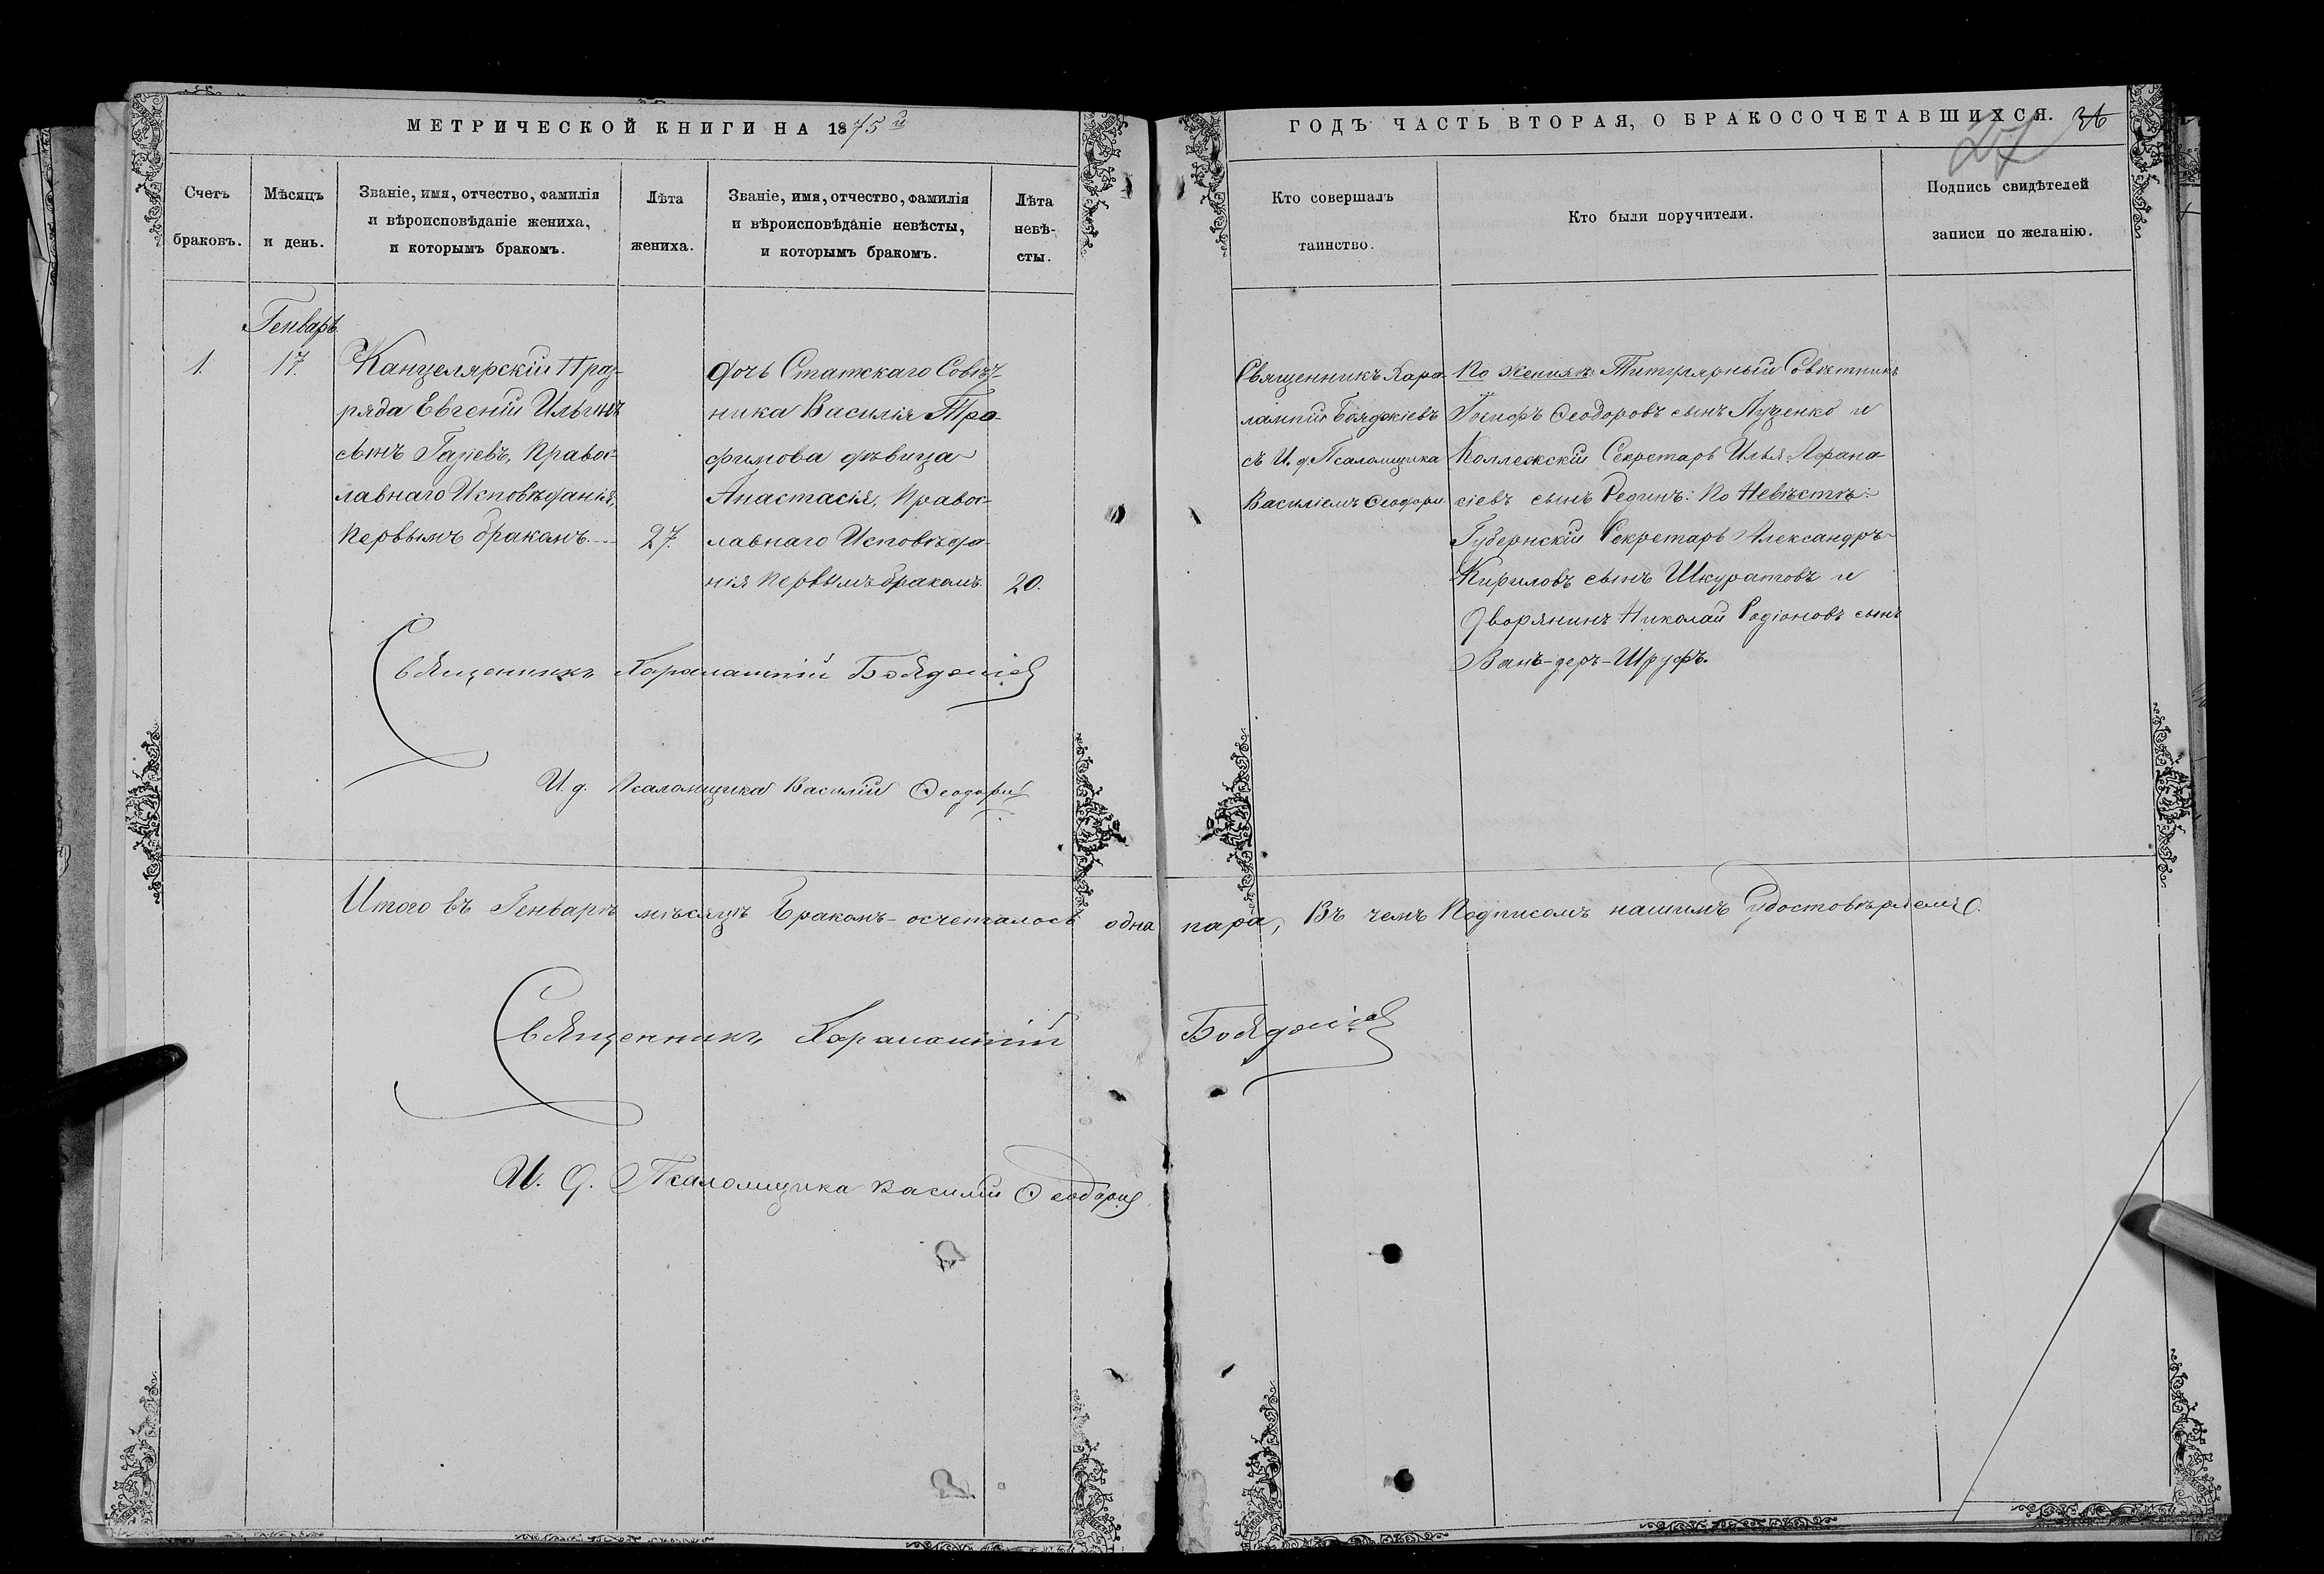 МЕТРИЧЕСКОЙ КНИГИ НА 1875й
ГОДЪ ЧАСТЬ ВТОРАЯ, О БРАКОСОЧЕТАВШИХСЯ. 36
27
Счетъ браковъ.
Мѣсяцъ и день.
Званіе, имя, отчество, фамилія
и вѣроисповѣданіе жениха,
и которымъ бракомъ.
Лѣта
жениха.
Званіе, имя, отчество, фамилія
и вѣроисповѣданіе невѣсты,
и которымъ бракомъ.
Лѣта
невѣ-
сты.
Кто совершалъ
таинство.
Кто были поручители.
Подпись свидѣтелей
записи по желанію.
1.
Генварь
17.
Канцелярскій II раз-
ряда Евгеній Ильинъ
сынъ Газіевъ, Правос-
лавнаго Исповѣданія,
Первымъ бракомъ.
27.
Дочь Статскаго Совѣт-
ника Василія Тро-
фимова дѣвица
Анастасія, Правос-
лавнаго Исповѣда-
нія Первымъ бракомъ
20.
Священникъ Хара-
лампій Бояджіевъ
съ И. д. Псаломщика
Василіемъ Ѳеодори
По Женихѣ: Титулярный Совѣтникъ
Іосифъ Ѳеодоровъ сынъ Луценко и
Коллежскій Секретарь Илья Афана-
сіевъ сынъ Рединъ: По Невѣстѣ:
Губернскій Секретарь Александръ
Кириловъ сынъ Шкуратовъ и
Дворянинъ Николай Родіоновъ сынъ
Ванъ-деръ-Шруфъ.
Священникъ Харалампій Бояджіев
И. д. Псаломщика Василій Ѳеодори
Итого въ Генварѣ мѣсяцѣ Бракомъ-осчеталось одна пара, Въ чемъ Подписомъ нашимъ Удостовѣряемъ.
Священникъ Харалампій Бояджіев
И. д. Псаломщика Василій Ѳеодори